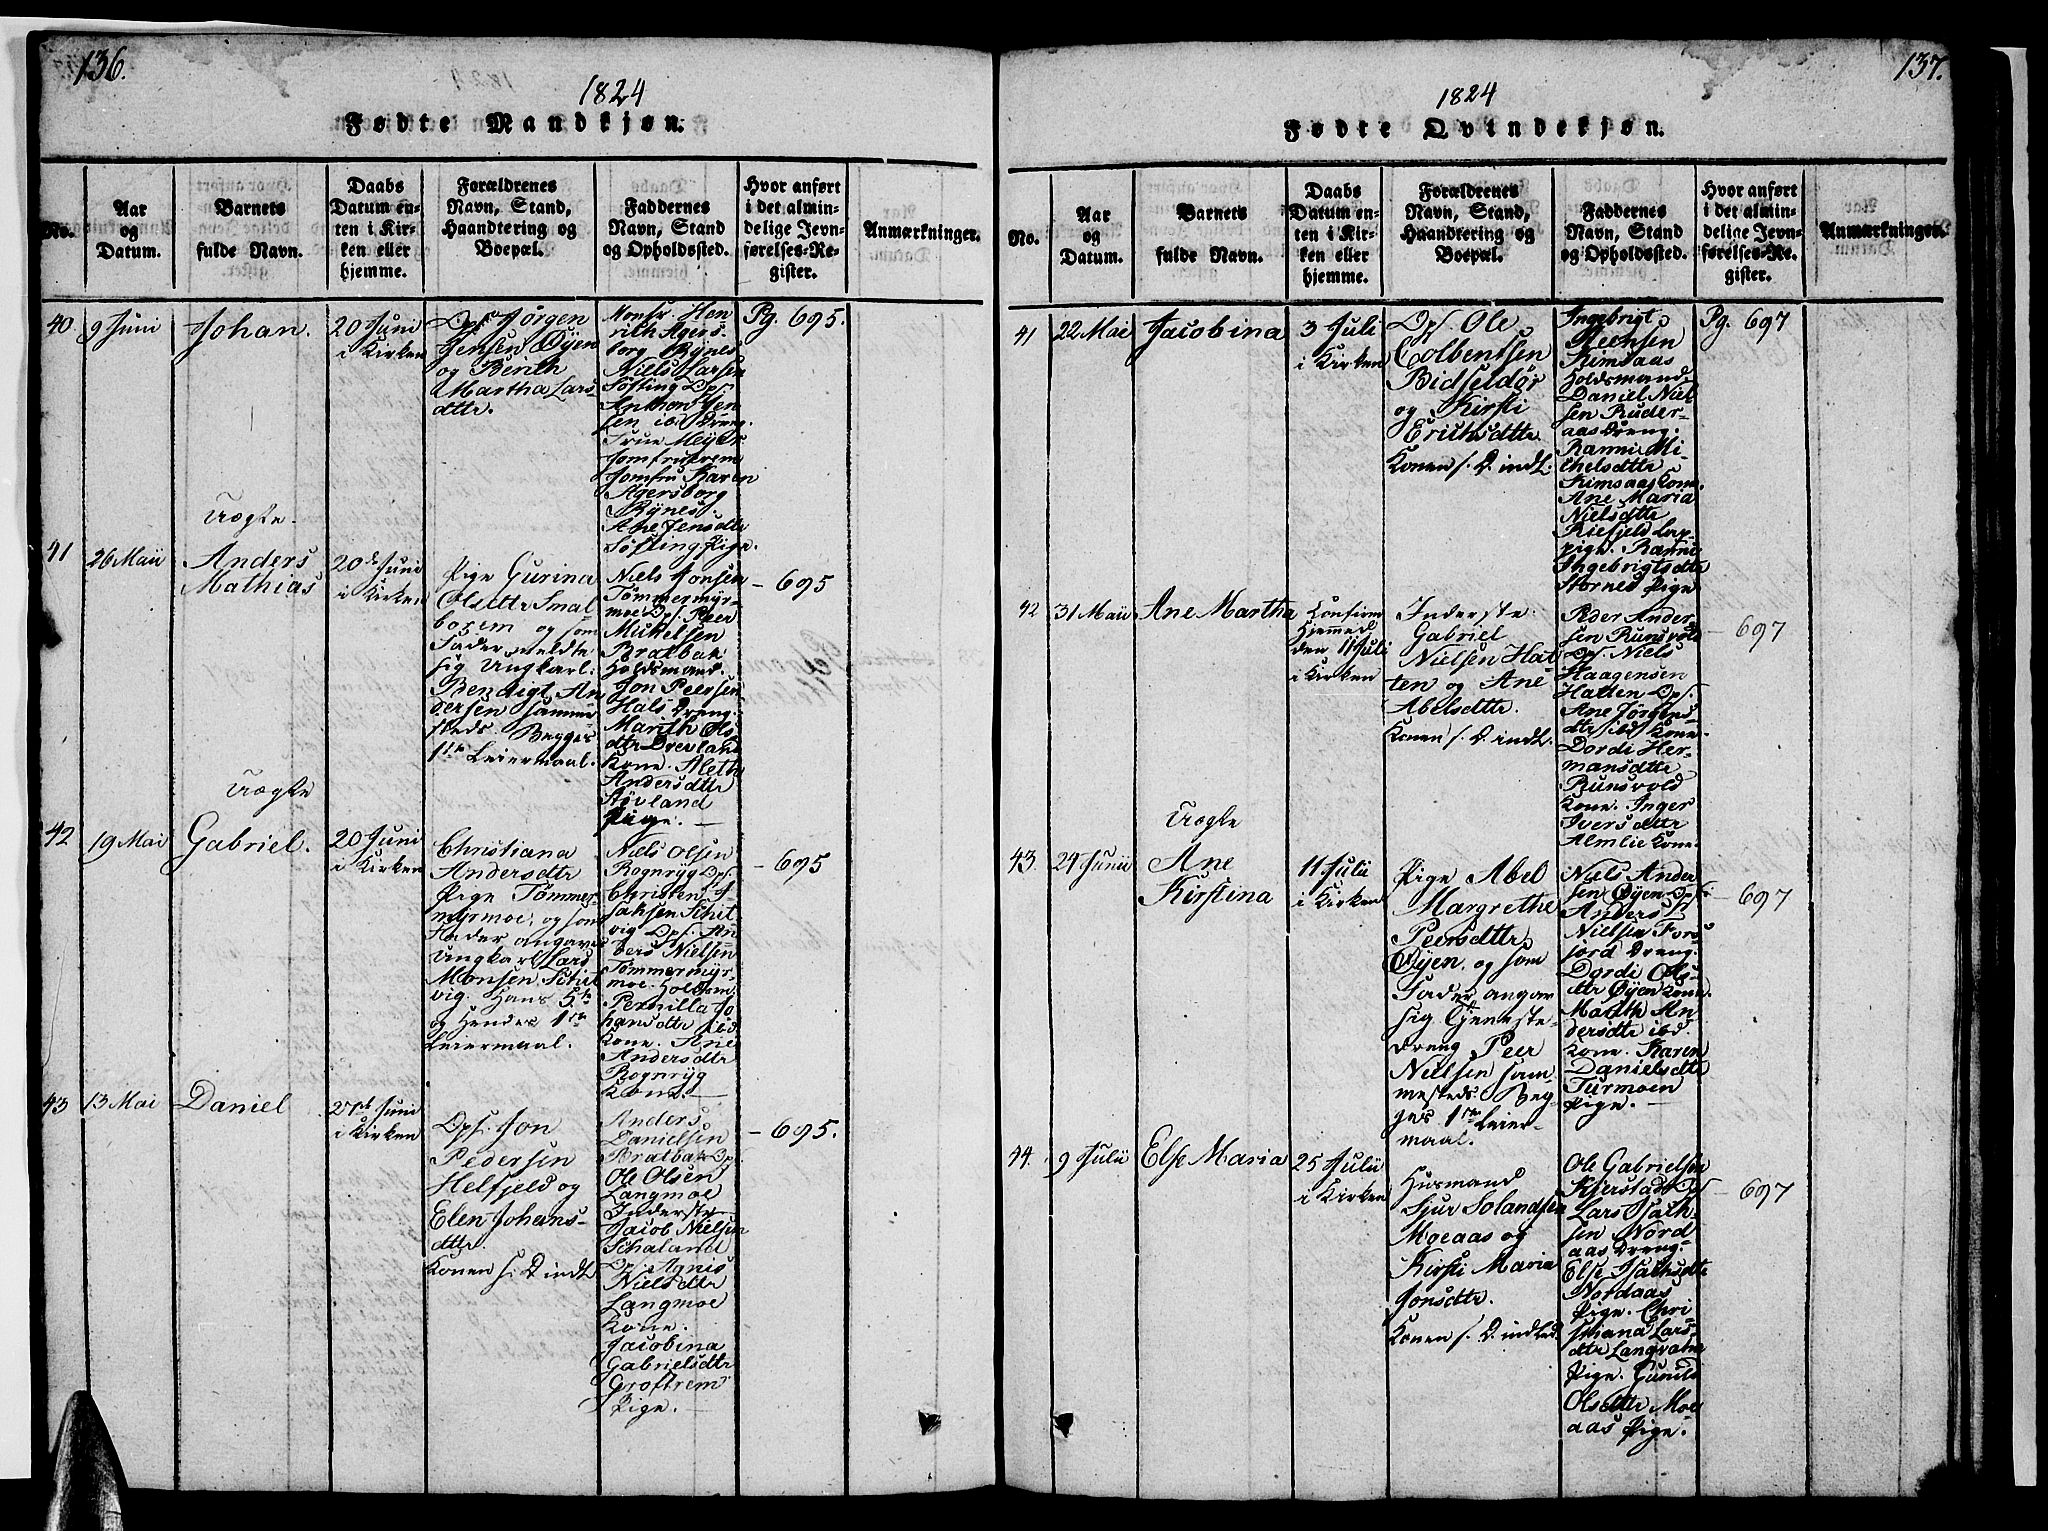 136.
1824
Fødte Mandkjøn.
No.
Aar
og
Datum.
Barnets
fulde Navn.
Daabs
Datum en-
ten i Kir-
ken eller
hjemme.
Forældrenes
Navn, Stand,
Haandtering og
Boepæl.
Faddernes
Navn, Stand
og Opholdssted.
Hvor anført
i det almin-
delige Jevn-
førelses-Re-
gister.
Anmærkninger.
40
9 Juni
Johan.
20 Juni
i Kirken
Ops. Jørgen
Jensen Øyen
og Berith
Martha Lars-
dttr.
Monsr Hen
rich Agers-
borg Rynes
Niels Larsen
Søfting Ops.
Anthon Jen
sen ibd Dreng.
Frue Meyer
Jomfru
Jomfru Karen
Agersborg
Rynes.
Ane Jensdttr
Søfting Pige.
Pg. 695.
41
26 Maii
Uægte.
Anders
Mathias
20de Juni
i Kirken
Pige Gurina
Olsdttr Smal
borem og som
Fader meldte
sig Ungkarl.
Bendigt An
dersen samme
steds. Begges
1ste Leiermaal.
Niels Monsen
Tømmermyr-
moe Ops. Peer
Mickelsen
Bratbak
Holdsmand.
Jon Peersen
Hals Dreng.
Marith Ols
dttr Drevland
Kone. Aleth
Andersdttr
Støvland
Pige.
– 695
42
19 Mai
Uægte
Gabriel.
20 Juni
i Kirken
Christiana
Andersdttr
Pige Tømmer-
myrmoe, og som
Fader angaves
Ungkarl Lars
Monsen Schit
vig. Hans 5te
og Hendes 1ste
Leiermaal.
Niels Olsen
Rognryg Ops.
Christen I
sachsen Schit
vig Ops. An
ders Nielsen
Tømmermyr-
moe. Holdsm.
Pernilla Jo
hansdttr ibd
Kone. Ane
Andersdttr
Rognryg
Kone.
– 695
43
13 Mai
Daniel
27de Juni
i Kirken
Ops. Jon
Pedersen
Helfjeld og
Elen Johans-
dttr.
Konen s. D. indl.
Anders
Danielsen
Bratbak Ops.
Ole Olsen
Langmoe
Inderste
Jacob Nielsen
Schaland
Ops. Agnis
Nielsdttr
Langmoe
Kone.
Jacobina
Gabrielsdttr
Groftrem
Pige.
– 695.
137.
1824
Fødte Qvindekjøn.
No.
Aar
og
Datum.
Barnets
fulde Navn.
Daabs
Datum en-
ten i Kir-
ken eller
hjemme.
Forældrenes
Navn, Stand,
Haandtering og
Boepæl.
Faddernes
Navn, Stand
og Opholdssted.
Hvor anført
i det almin-
delige Jevn-
førelses-Re-
gister.
Anmærkninger.
41
22 Mai
Jacobina
3 Juli
i Kirken
Ops. Ole
Colbentsen
Bidseldør
og Kirsti
Erichsdttr
Konen s. D. indl.
Ingebrigt
Steensen
Remsaas
Holdsmand.
Daniel Niel
sen Ruder-
aas Dreng.
Ranni Mi
chelsdttr
Remsaas Kone.
Ane Maria
Nielsdttr
Riefjeld Lap
pige. Ranni
Ingebrigtsdttr
Hornes Pige
Pg. 697
42
31 Maii
Ane Martha
Confirm
Hjemmed
den 11 Juli
i Kirken
Inderste
Gabriel
Nielsen Hat
ten og Ane
Abelsdttr.
Konen s. D. indl.
Peder Ander
sen Runsvold
Ops. Niels
Haagensen
Hatten Ops.
Ane Jørgens
dttr ibd Kone.
Dordi Her
mansdttr
Runsvold
Kone. Inger
Iversdttr
Almlie Kone.
– 697
43.
24 Junii
Uægte
Ane
Kirstina
11 Julii
i Kirken
Pige Abel
Margrethe
Peersdttr
Øyen, og som
Fader angav
sig Tjeneste-
dreng Peer
Nielsen sam
mesteds. Beg-
ges 1ste Leier
maal.
Niels Ander
sen Øyen Ops.
Anders
Nielsen Fors
jord Dreng.
Dordi Ols-
dttr Øyen Kone.
Marith An
dersdttr ibd
Kone. Karen
Danielsdttr
Turmoen
Pige.
– 697
44.
9 Julii
Else Maria
25 Julii
i Kirken
Husmand
Sjur Solandsen
Moeaas og
Kirsti Maria
Jonsdttr.
Konen s. D. indled.
Ole Gabrielsen
Kjerstad Ops.
Lars Isach
sen Nord
aas Dreng.
Else Isachsdttr
Nordaas
Pige. Chri
stiana Lars-
dttr Langvatne
Pige. Gunild
Olsdttr Moe
aas Pige.
– 697